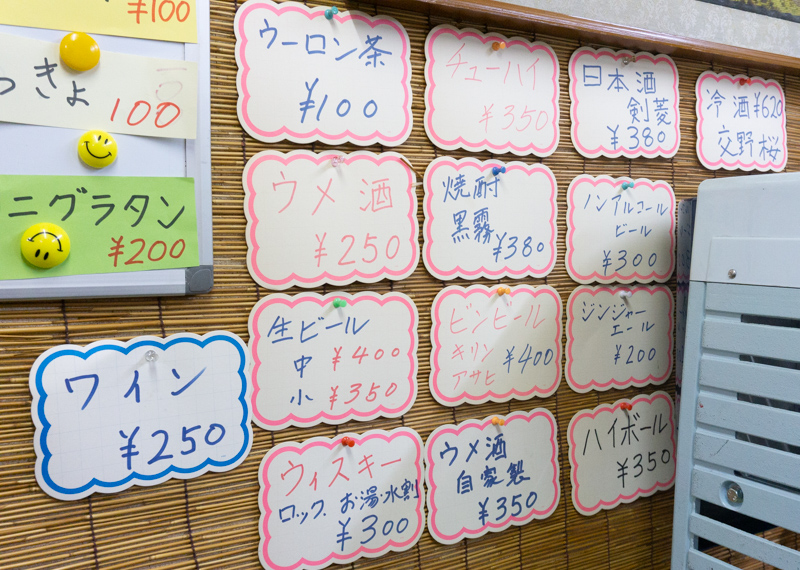 ¥100
っきょ
100
ニグラタン
¥200
ウーロン茶
¥100
チューハイ
¥350
日本酒
剣菱
¥380
冷酒¥620
交野桜
ウメ酒
¥250
焼酎
黒霧
¥380
ノンアルコール
ビール
¥300
生ビール
中 ¥400
小 ¥350
ビンビール
キリン
アサヒ
¥400
ジンジャー
エール
¥200
ワイン
¥250
ウィスキー
ロック、お湯・水割
¥300
ウメ酒
自家製
¥350
ハイボール
¥350